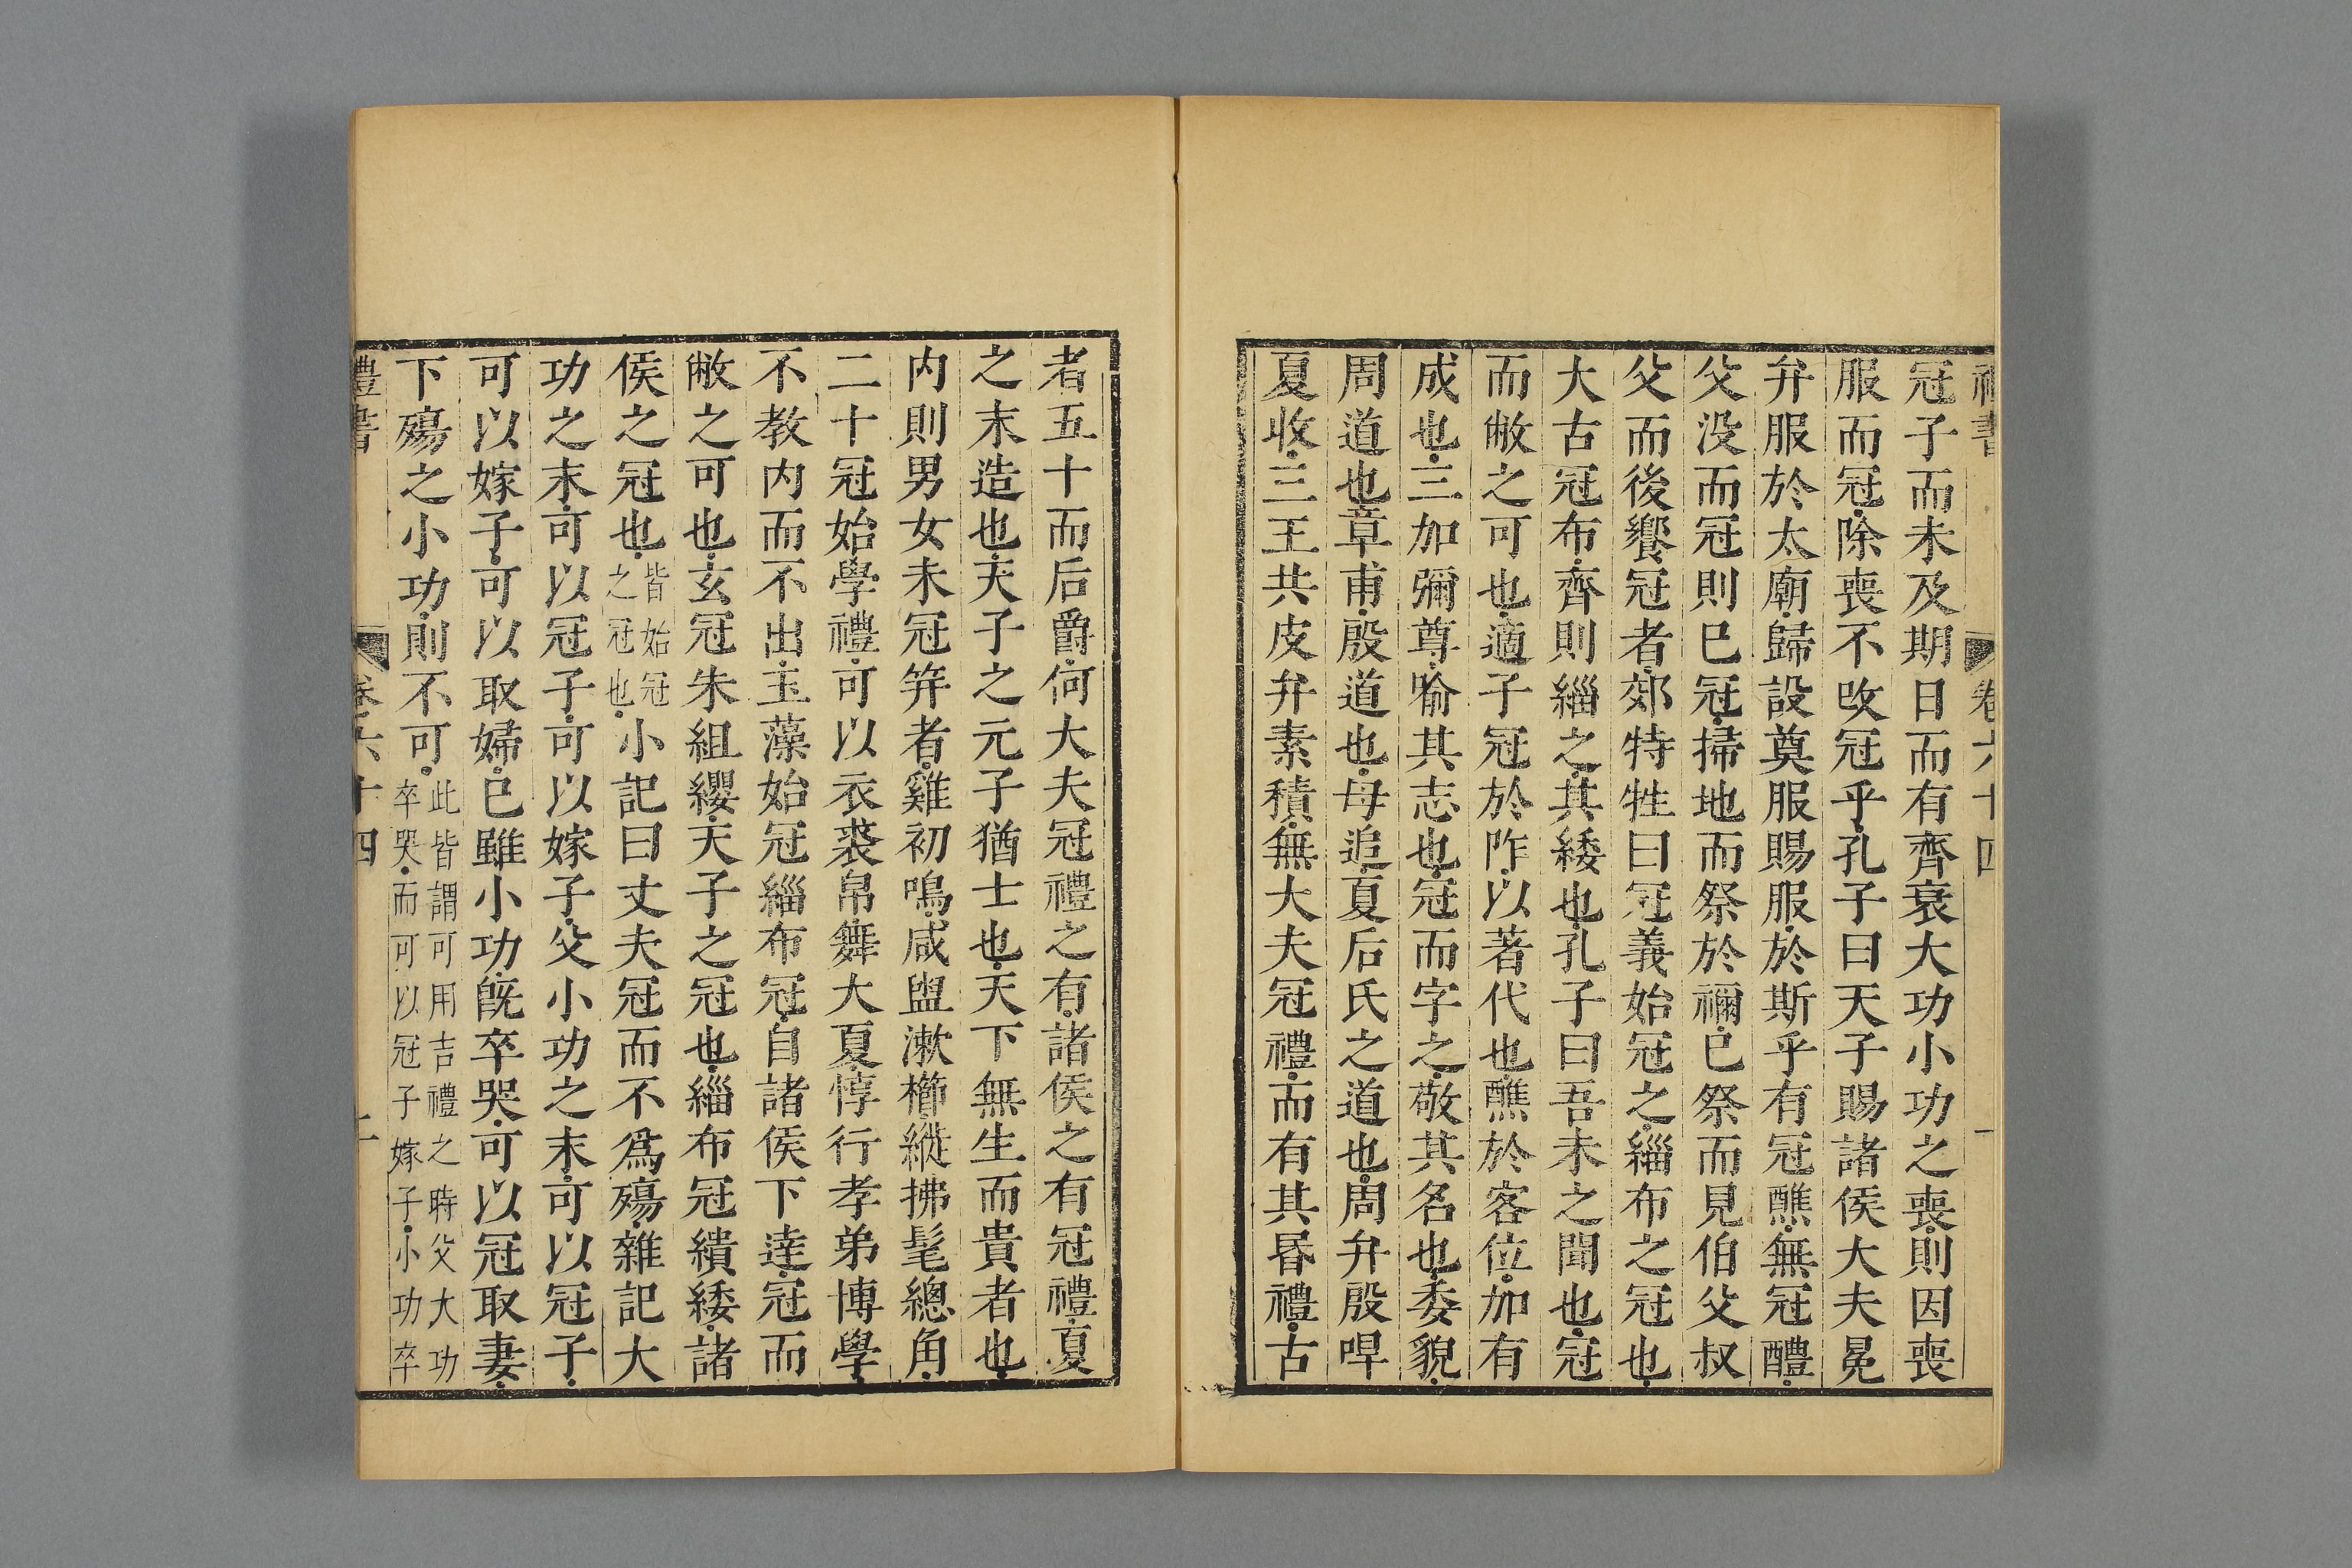 禮書 卷六十四 一
冠子而未及期日而有齊衰大功小功之喪則因喪
服而冠除喪不改冠乎孔子曰天子賜諸侯大夫冕
弁服於太廟歸設奠服賜服於斯乎有冠醮無冠醴
父没而冠則已冠掃地而祭於禰已祭而見伯父叔
父而後饗冠者郊特牲曰冠義始冠之緇布之冠也
大古冠布齊則緇之其緌也孔子曰吾未之聞也冠
而敝之可也適子冠於阼以著代也醮於客位加有
成也三加彌尊喻其志也冠而字之敬其名也委貌
周道也章甫殷道也母追夏后氏之道也周弁殷哻
夏收三王共皮弁素積無大夫冠禮而有其昬禮古
者五十而后爵何大夫冠禮之有諸侯之有冠禮夏
之末造也天子之元子猶士也天下無生而貴者也
内則男女未冠笄者雞初鳴咸盥漱櫛縰拂髦總角
二十冠始學禮可以衣裘帛舞大夏惇行孝弟博學
不教内而不出玉藻始冠緇布冠自諸侯下逹冠而
敝之可也玄冠朱組纓天子之冠也緇布冠繢緌諸
侯之冠也皆始冠之冠也小記曰丈夫冠而不爲殤雜記大
功之末可以冠子可以嫁子父小功之末可以冠子
可以嫁子可以取婦已雖小功旣卒哭可以冠取妻
下殤之小功則不可此皆謂可用吉禮之時父大功卒哭而可以冠子嫁子小功卒
禮書 卷六十四